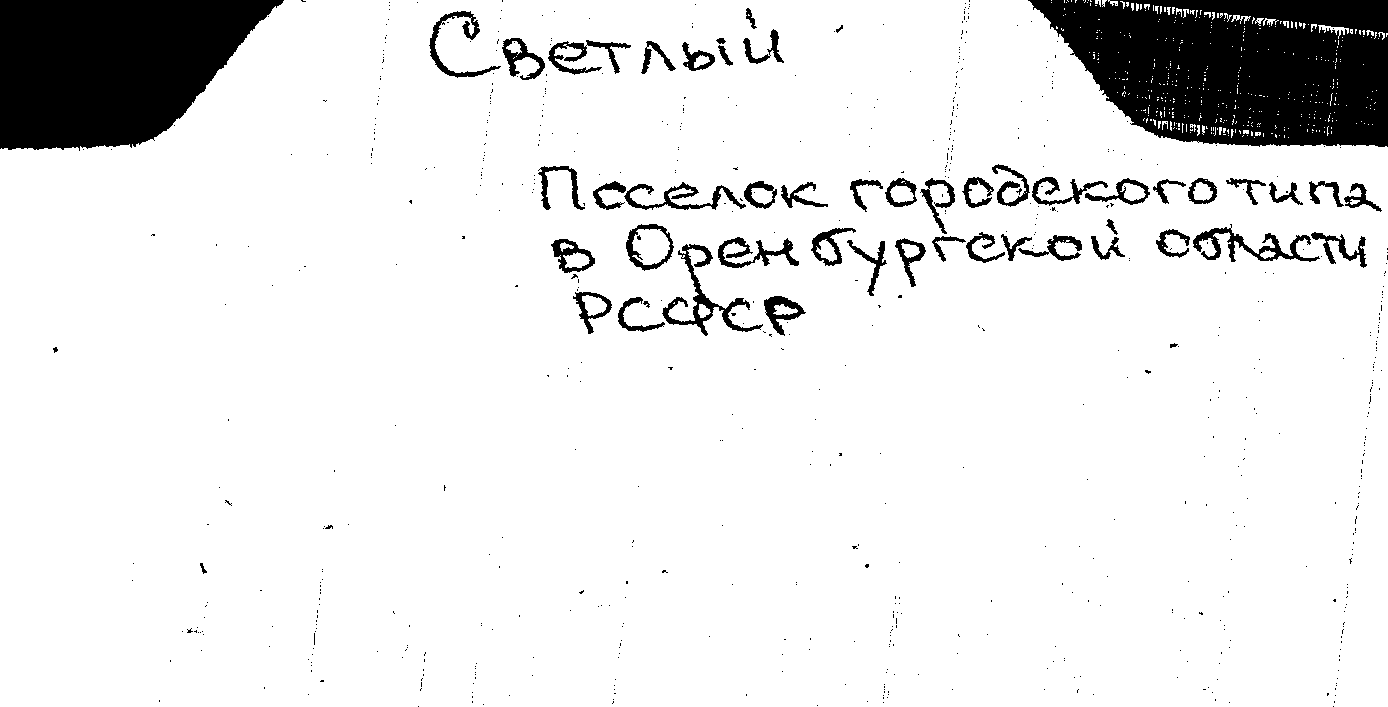 Светлый
Поселок городского типа
в Оренбургской области
РСФСР